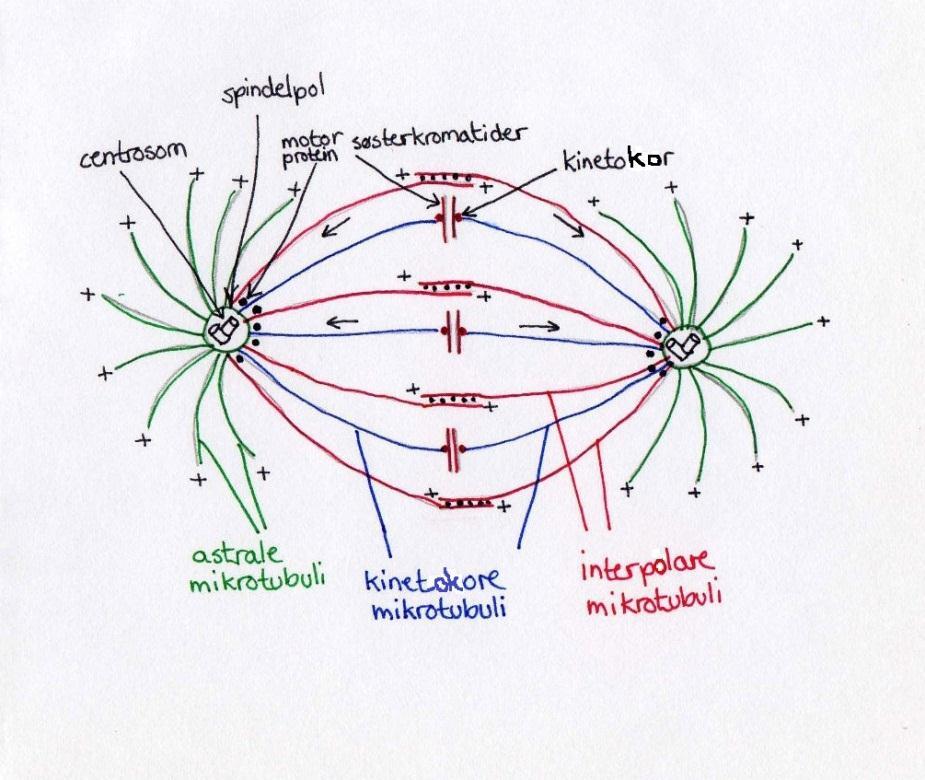 spindelpol
centrosom
motor
protein
søsterkromatider
kinetokor
+ +
+ + + + +
+ +
+ + +
+ +
+
+ + +
+ +
+ +
+ + +
+ + + +
astrale
mikrotubuli
kinetokore
mikrotubuli
interpolare
mikrotubuli